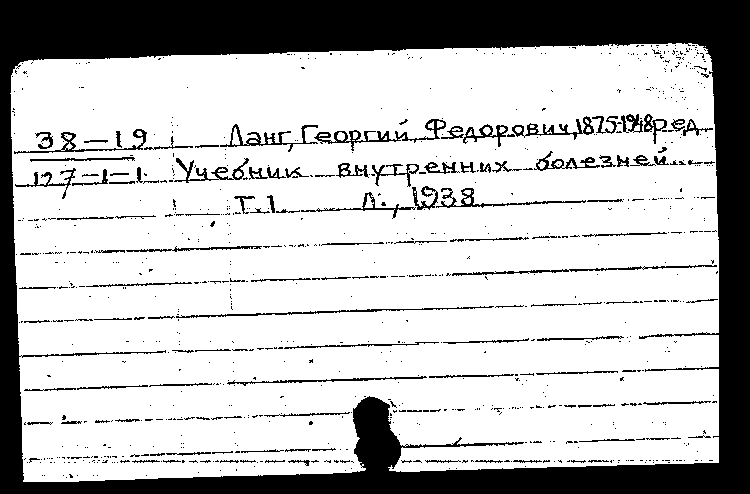 38-19 Ланг, Георгий Федорович, 1875-1948 ред
127-1-1. Учебник внутренних болезней...
Т.1. Л., 1938.